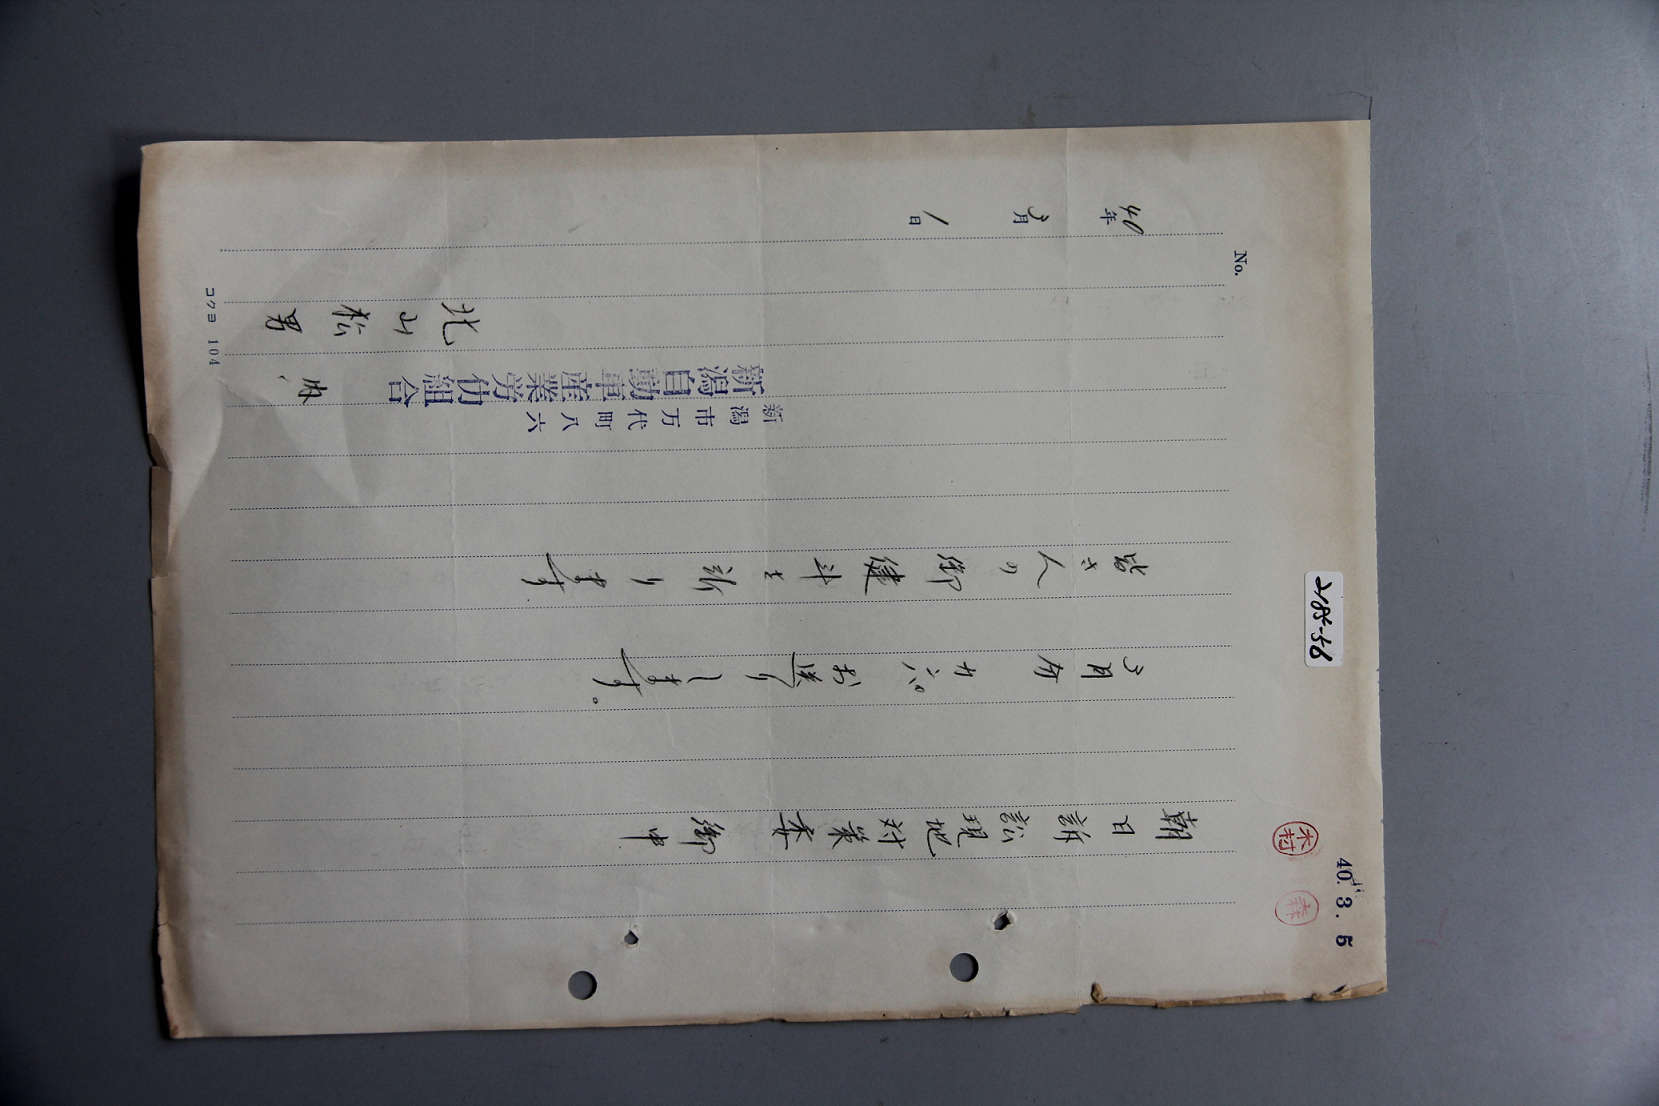 40. 3. 5
木村
2185-56
No.
朝日訴訟現地対策委 御中
3月分カンパお送りします。
皆さんの御健斗を祈ります
新潟市万代町八六
新潟自動車産業労仂組合
内
北山松男
40年3月1日
コクヨ 104